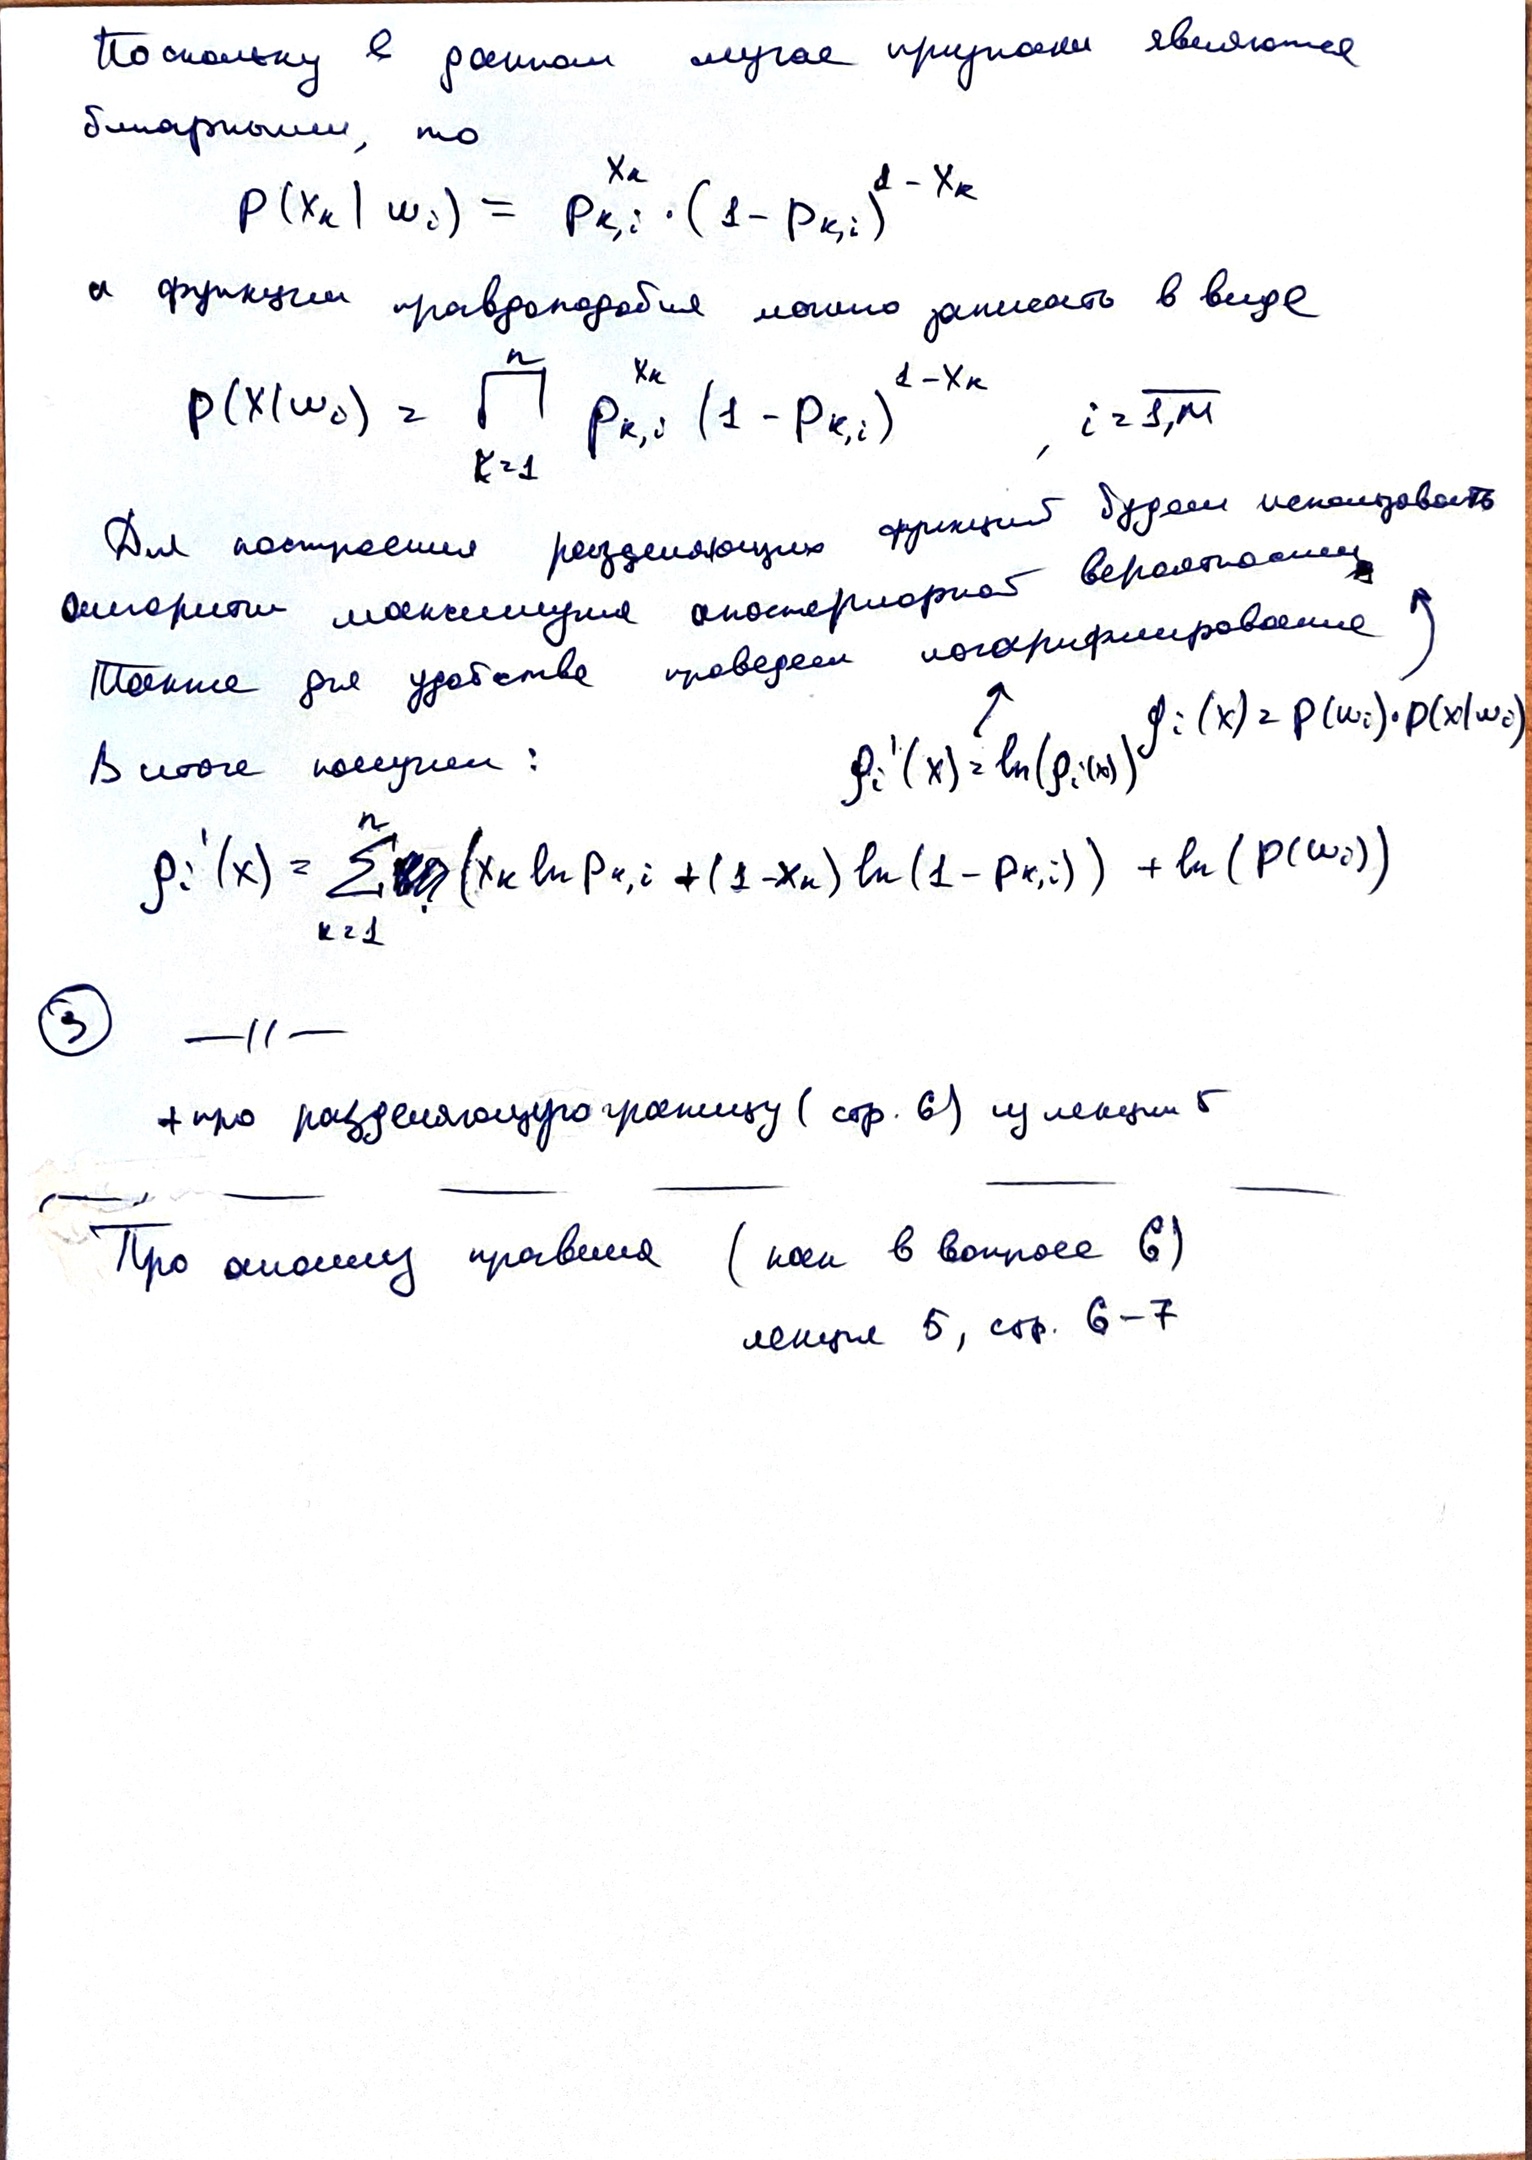 Поскольку в данном случае признаки являются
бинарными, то
p(xₖ | wᵢ) = pₖ,ᵢ^xₖ · (1 - pₖ,ᵢ)^(1 - xₖ)
и функции правдоподобия можно записать в виде
p(x|wᵢ) = ∏ₖ₌₁ⁿ pₖ,ᵢ^xₖ (1 - pₖ,ᵢ)^(1 - xₖ), i = 1,M
Для построения разделяющих функций будем использовать
алгоритм максимума апостериорной вероятности
Также для удобства проведем логарифмирование
ρᵢ(x) = p(wᵢ)·p(x|wᵢ)
В итоге получим:
ρᵢ'(x) = ln(ρᵢ(x))
ρᵢ'(x) = ∑ₖ₌₁ⁿ (xₖ ln pₖ,ᵢ + (1-xₖ) ln(1 - pₖ,ᵢ)) + ln(p(wᵢ))
3 —//—
+ про разделяющую границу (стр. 6) из лекции 5
Про анализ правила (как в вопросе 6)
лекция 5, стр. 6-7